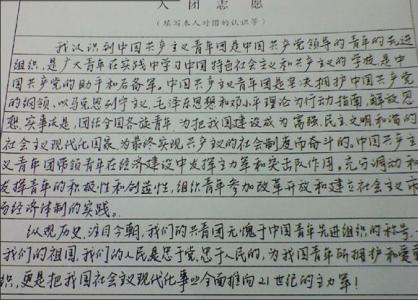 入团志愿
（填写本人对团的认识等）
我认识到中国共产主义青年团是中国共产党领导的青年的先进
组织，是广大青年在实践中学习中国特色社会主义和共产主义的学校，是中
国共产党的助手和后备军。中国共产主义青年团是坚决拥护中国共产党
的纲领，以马克思列宁主义、毛泽东思想和邓小平理论为行动指南，解放思
想，实事求是，团结全国各族青年，为把我国建设成为富强、民主、文明和谐的
社会主义现代化国家，为最终实现共产主义的社会制度而奋斗的。中国共产主
义青年团带领青年在经济建设中发挥主力军和突击队作用，充分调动和
发挥青年的积极性和创造性，组织青年参加改革开放和建立社会主义市
场经济体制的实践。
纵观历史，注目今朝，我们的共青团无愧于中国青年先进组织的称号，
我们的祖国，我们的人民是忠于党，忠于人民的，为我国青年所拥护和爱戴
织，更是把我国社会主义现代化事业全面推向21世纪的主力军！